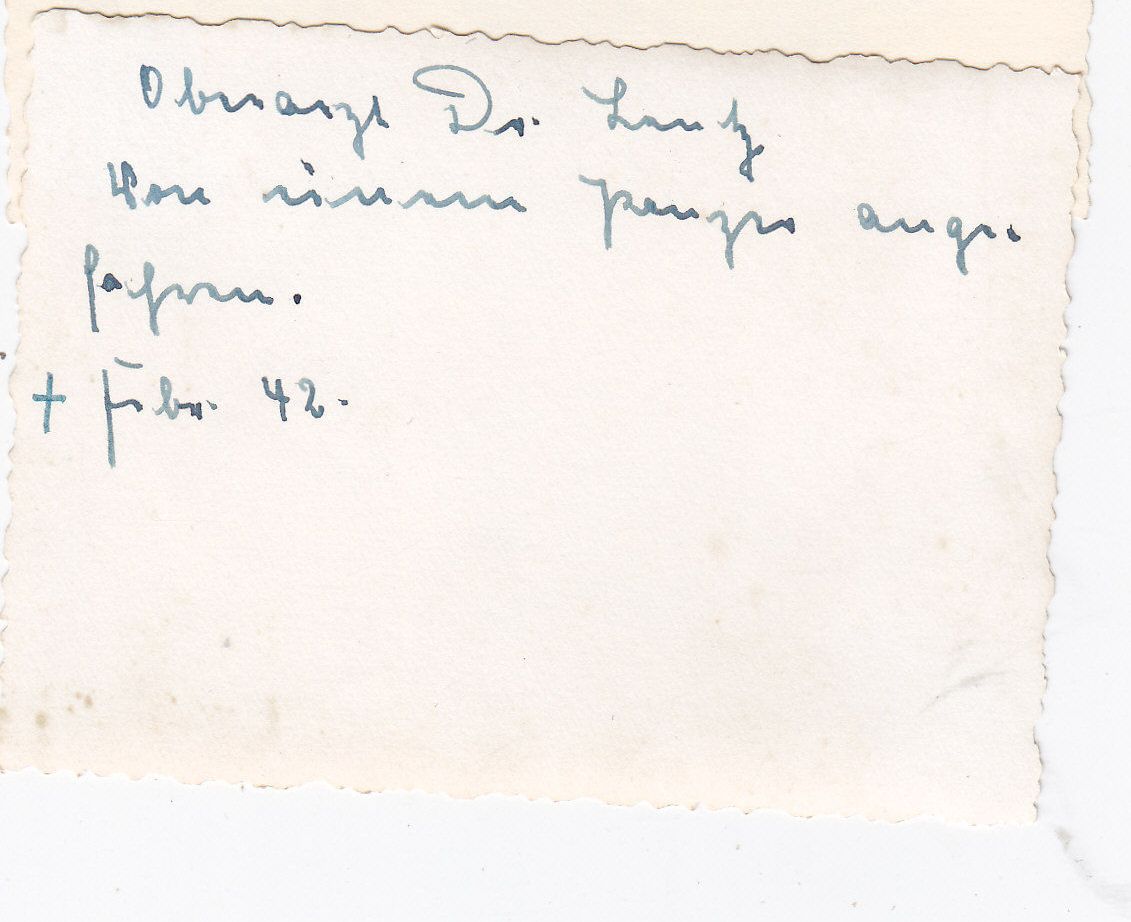 Oberarzt Dr. Lentz
Von einem Panzer ange-
fahren.
+ Febr. 42.